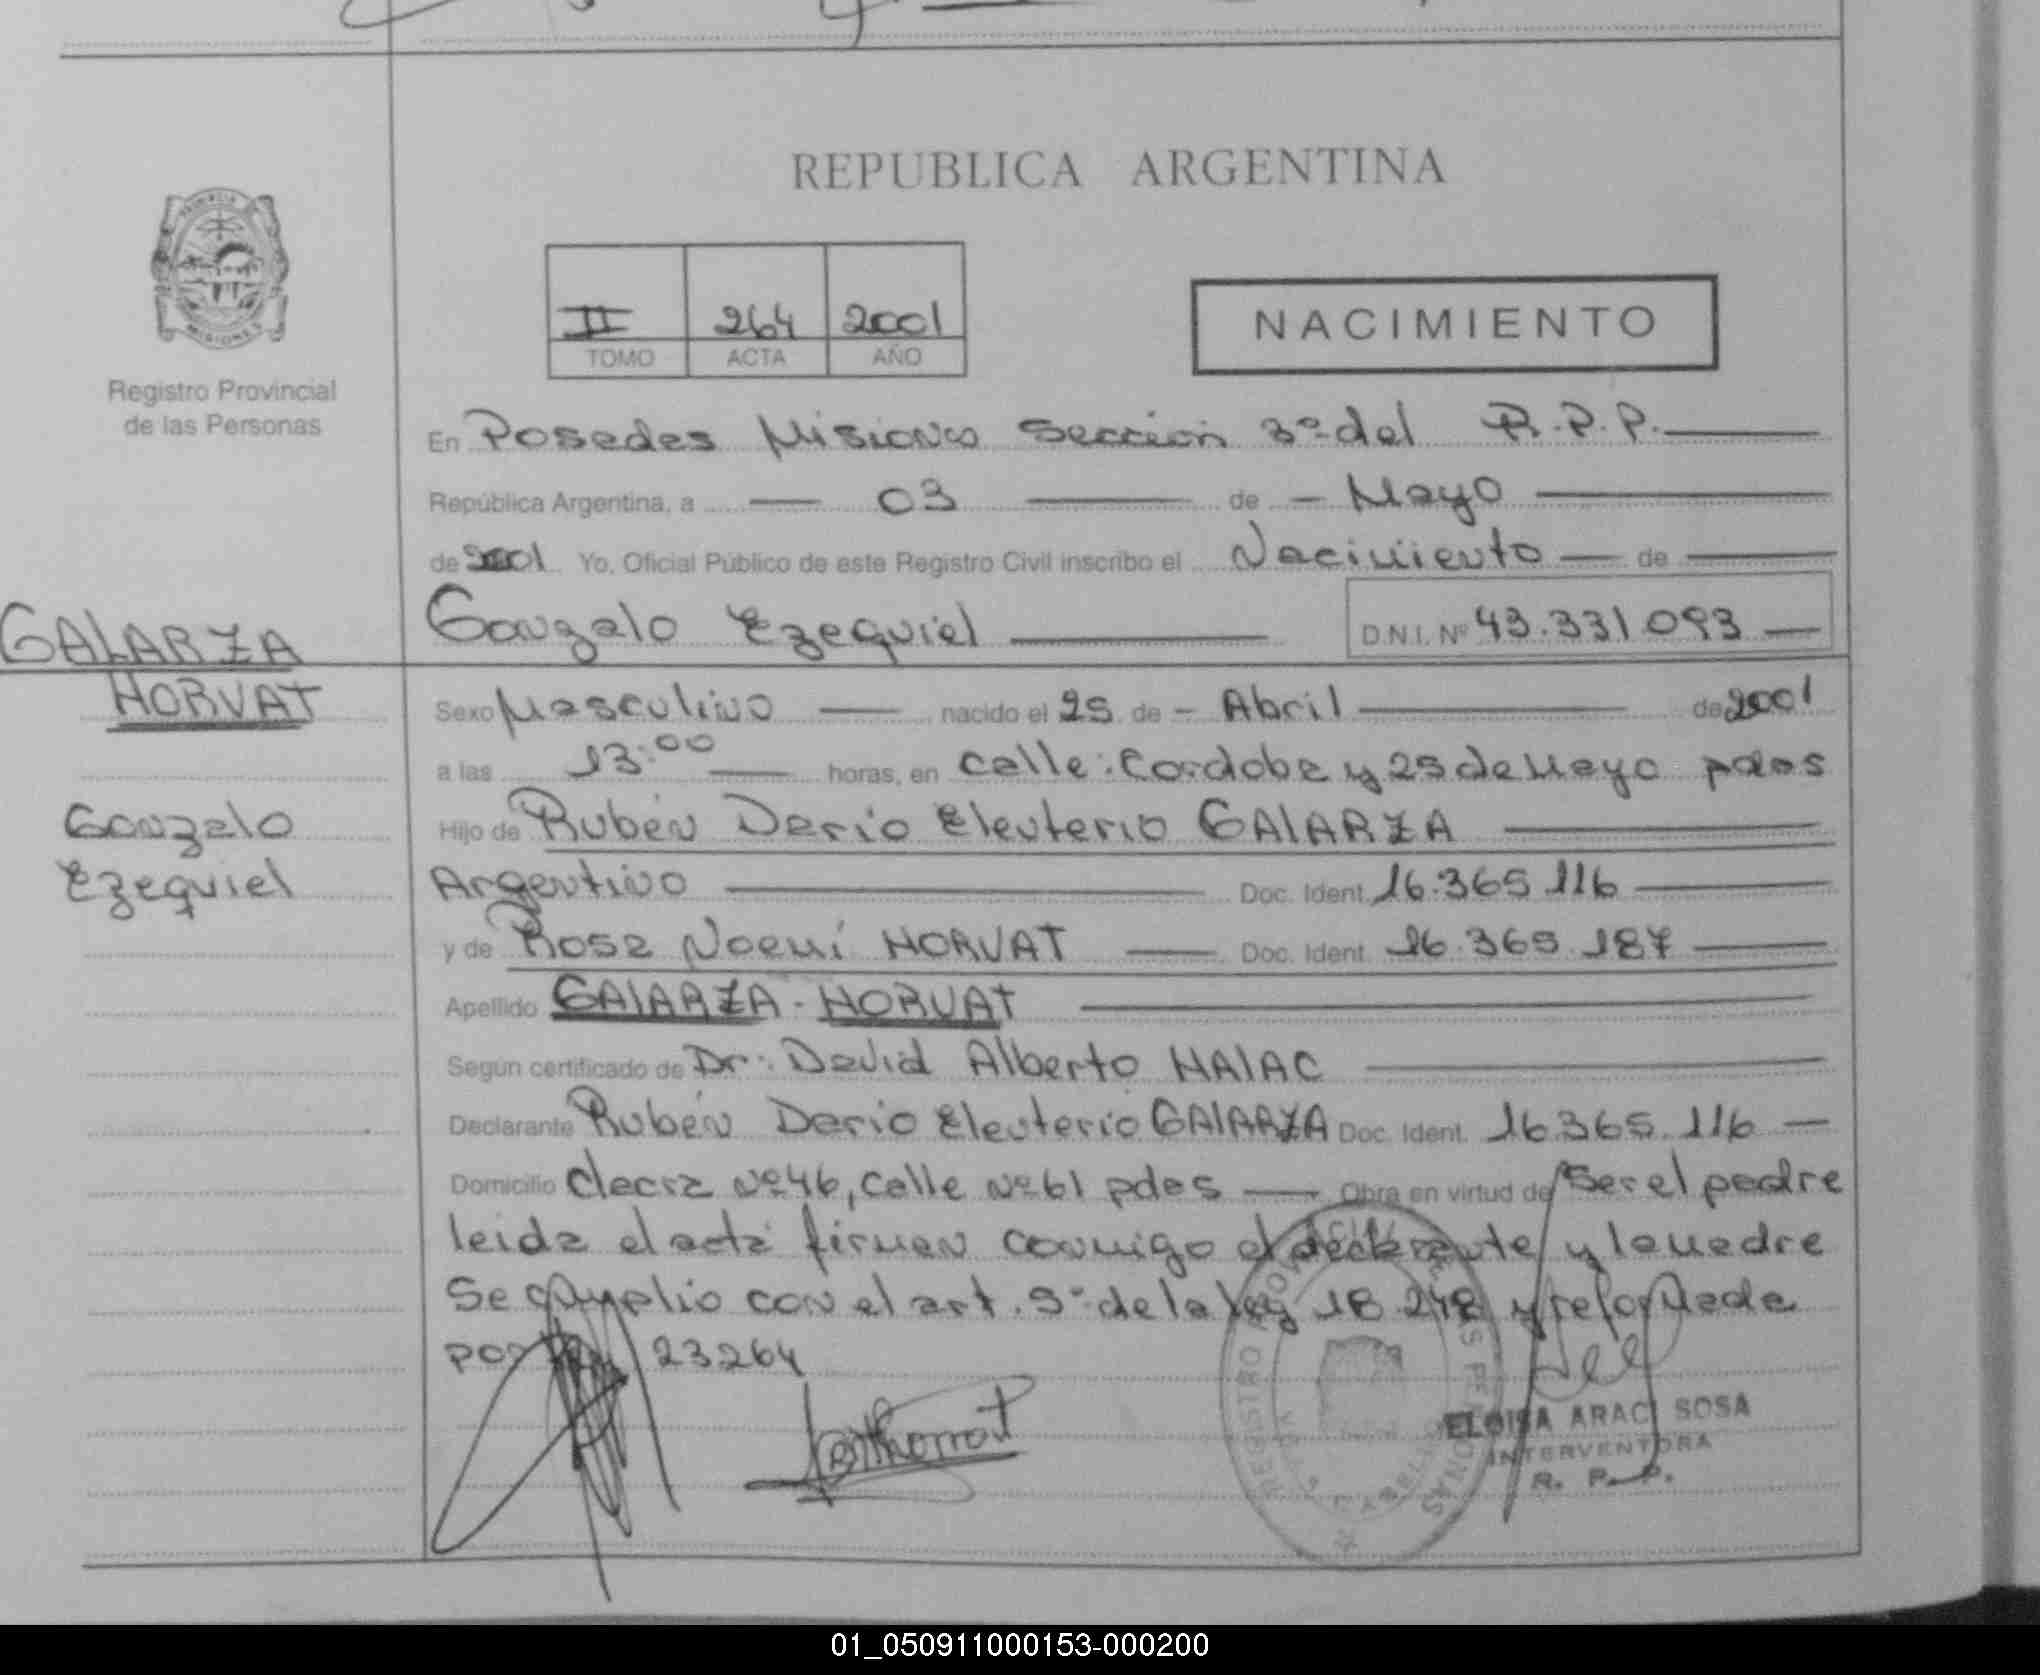 REPUBLICA ARGENTINA
PROVINCIA
MISIONES
Registro Provincial
de las Personas
II 264 2001
TOMO ACTA AÑO
NACIMIENTO
En Posadas Misiones Sección 3º del R.P.P.
República Argentina, a 03 de Mayo
de 2001 Yo, Oficial Público de este Registro Civil inscribo el Nacimiento de
Gonzalo Ezequiel D.N.I. Nº 43.331.093
GALARZA
HORVAT
Gonzalo
Ezequiel
Sexo Masculino nacido el 25 de Abril de 2001
a las 13:00 horas, en calle: Cordoba y 25 de Mayo pdas
Hijo de Rubén Dario Eleuterio GALARZA
Argentino Doc. Ident. 16.365.116
y de Rosa Noemí HORVAT Doc. Ident. 16.365.187
Apellido GALARZA - HORVAT
Según certificado de Dr: David Alberto HALAC
Declarante Rubén Dario Eleuterio GALARZA Doc. Ident. 16.365.116
Domicilio chacra Nº 46, calle Nº 61 pdas Obra en virtud de Ser el padre
leida el acta firman conmigo el declarante y la madre
Se cumplio con el art. 5º de la ley 18.248 y reformada
por 23264
ELOISA ARACI SOSA
INTERVENTORA
R. P. P.
01_050911000153-000200